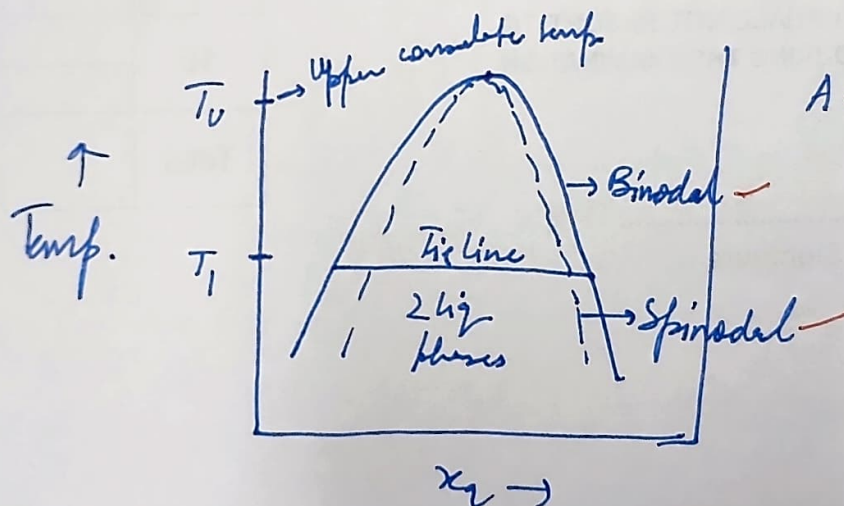 Upper consolute temp.
TU
A
Binodal
Temp.
T1
Tie line
2 liq
phases
Spinodal
xq